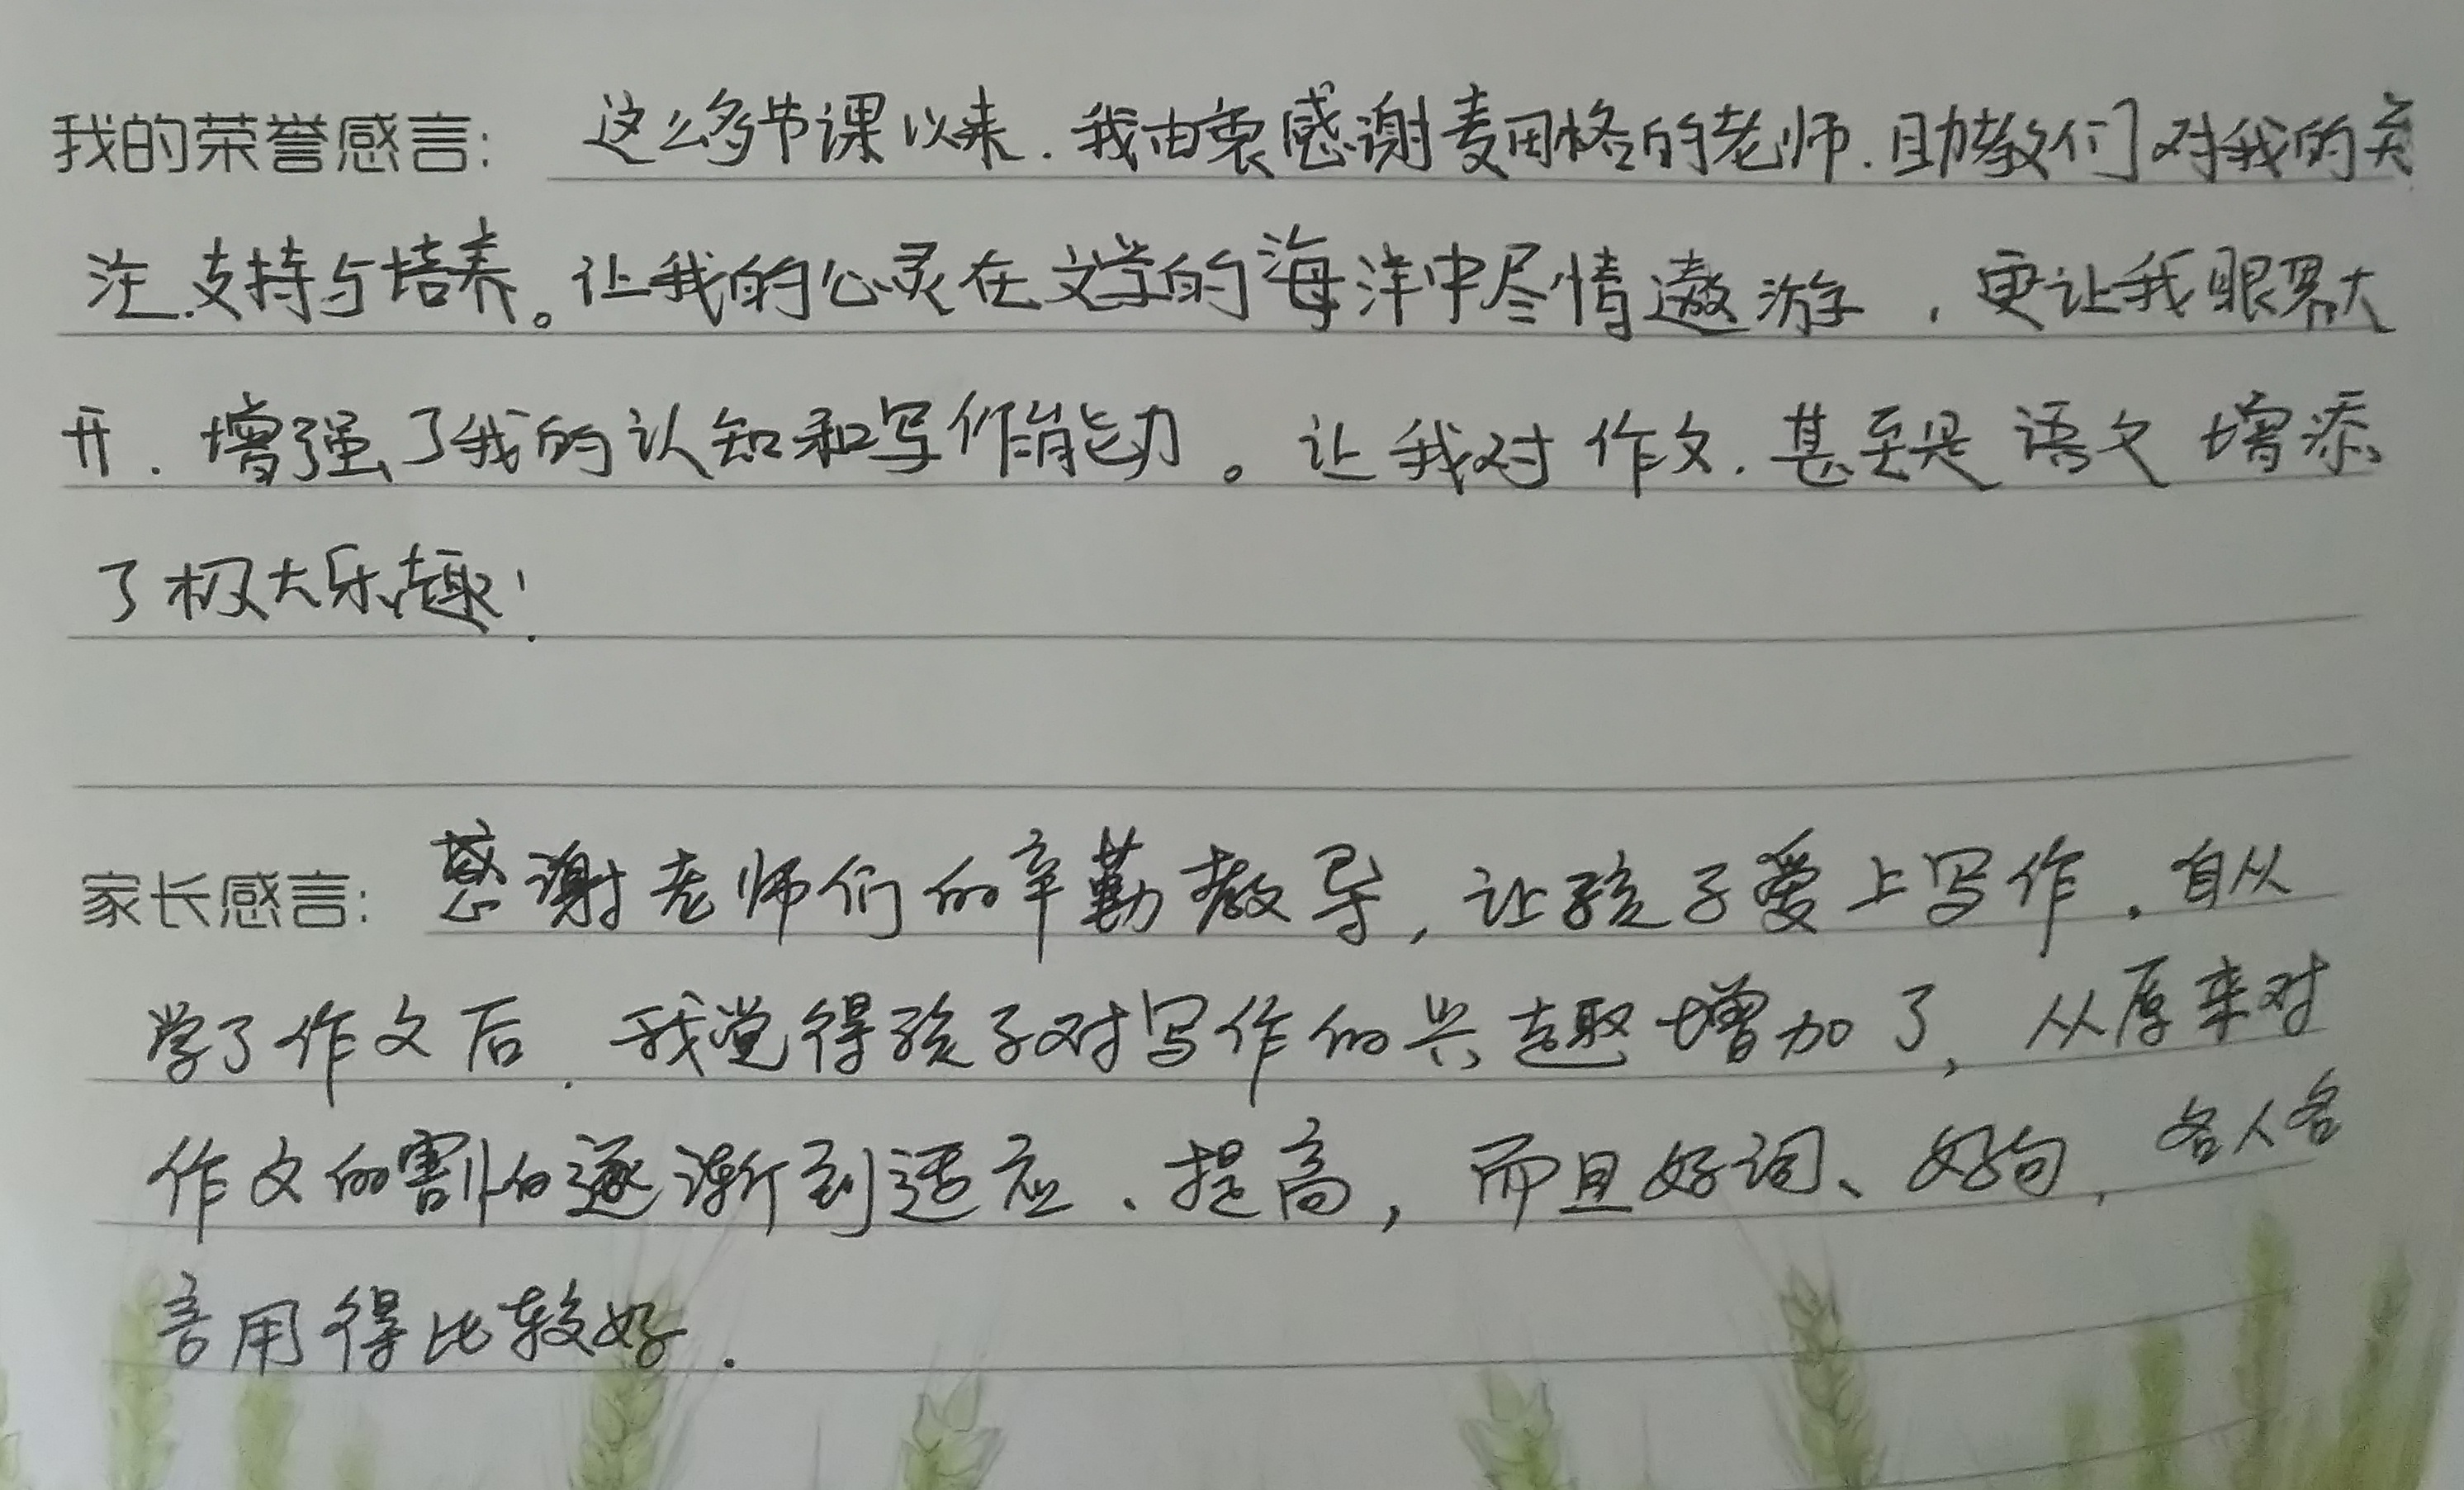 我的荣誉感言: 这么多节课以来.我由衷感谢麦田格的老师.助教们对我的关
注.支持与培养。让我的心灵在文学的海洋中尽情遨游,更让我眼界大
开.增强了我的认知和写作能力。让我对作文.甚至是语文增添
了极大乐趣!
家长感言: 感谢老师们的辛勤教导,让孩子爱上写作.自从
学了作文后.我觉得孩子对写作的兴趣增加了,从原来对
作文的害怕逐渐到适应、提高,而且好词、好句,名人名
言用得比较好.